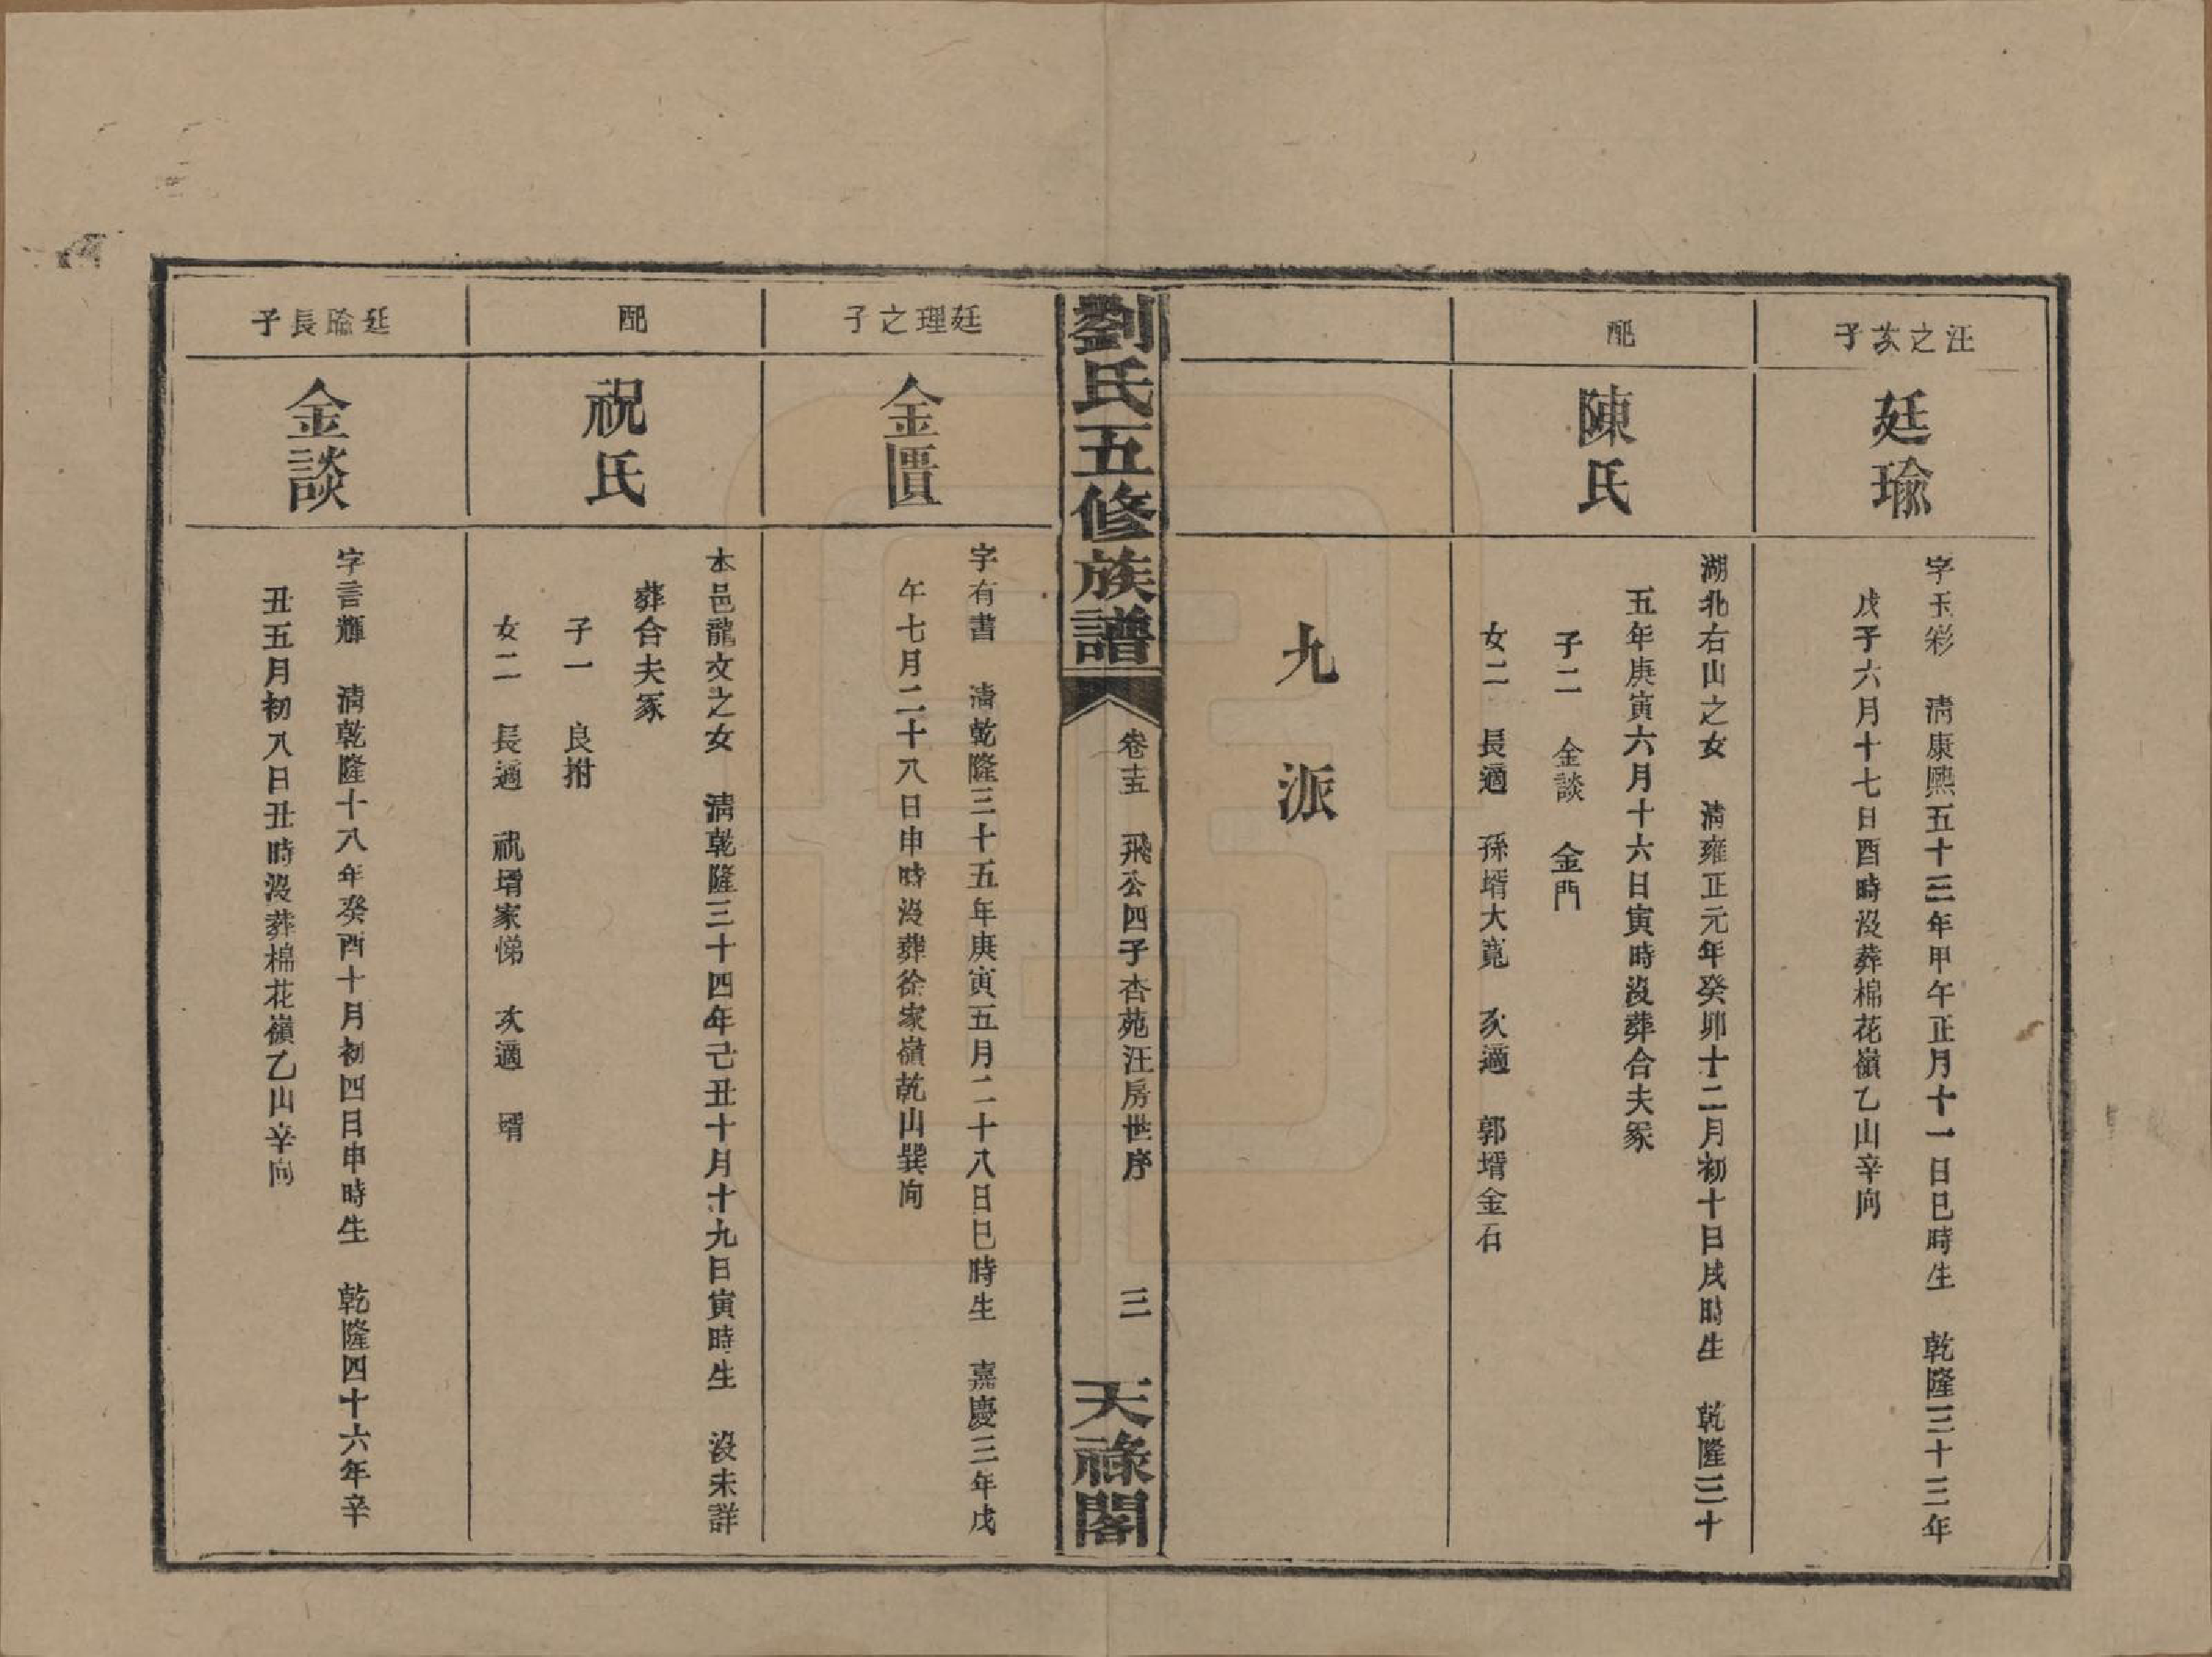 汪之次子
廷瑜
字玉彩　清康熙五十三年甲午正月十一日巳時生　乾隆三十三年
戊子六月十七日酉時沒葬棉花嶺乙山辛向
配
陳氏
湖北右山之女　清雍正元年癸卯十二月初十日戌時生　乾隆三十
五年庚寅六月十六日寅時沒葬合夫冢
子二　金談　金門
女二　長適　孫壻大寬　次適　郭壻金石
九派
劉氏五修族譜
卷十五　飛公四子杏苑汪房世序　三
天祿閣
廷理之子
金匱
字有書　清乾隆三十五年庚寅五月二十八日巳時生　嘉慶三年戊
午七月二十八日申時沒葬徐家嶺乾山巽向
配
祝氏
本邑龍文之女　清乾隆三十四年己丑十月十九日寅時生　沒未詳
葬合夫冢
子一　良拊
女二　長適　祝壻家悌　次適　壻
廷瑜長子
金談
字言輝　清乾隆十八年癸酉十月初四日申時生　乾隆四十六年辛
丑五月初八日丑時沒葬棉花嶺乙山辛向